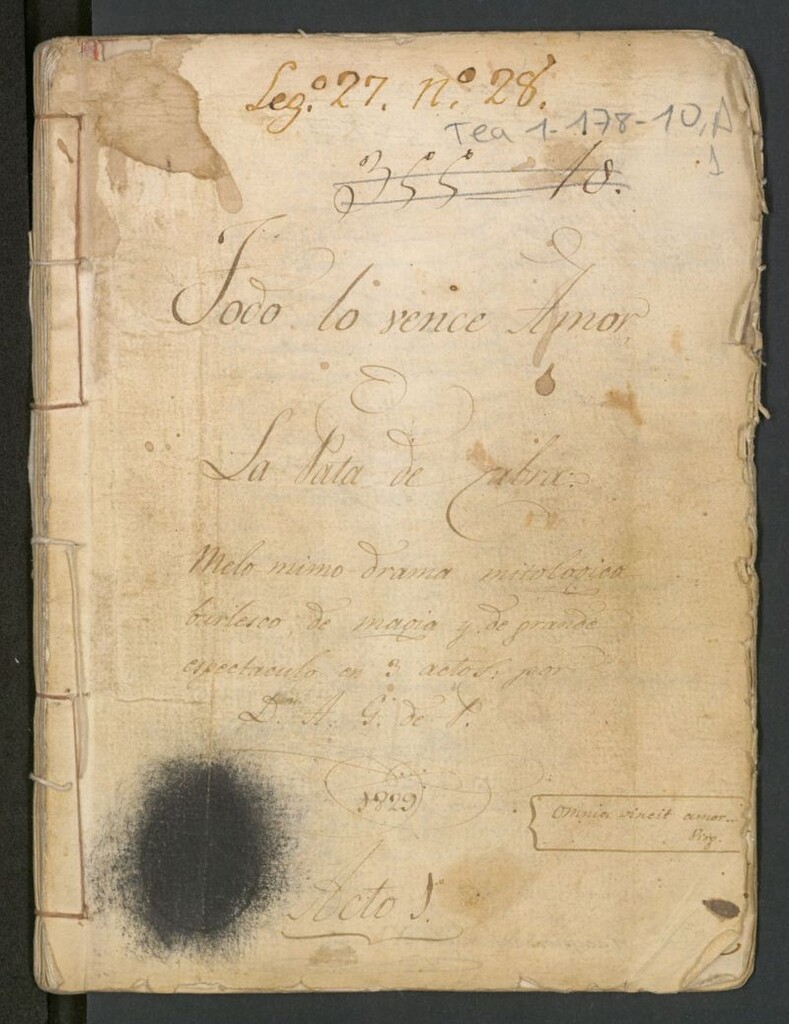 Leg.º 27. n.º 28.
Tea 1-178-10, A
1
Todo lo vence Amor
ó
La Pata de Cabra.
Melo-mimo-drama mitologico
burlesco, de magia y de grande
espectaculo en 3 actos, por
D.n A. G. de P.
1829
Omnia vincit amor...
Virg.
Acto 1.º